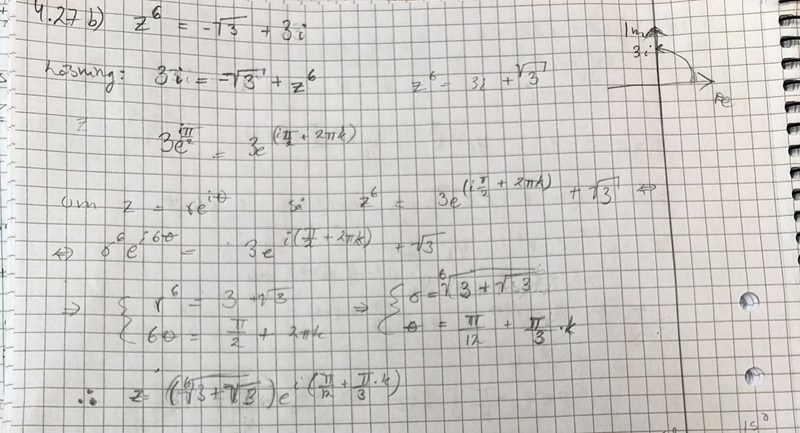 4.27 b) z⁶ = -√3 + 3i
Lösning: 3i = -√3 + z⁶ z⁶ = 3i + √3
Im
3i
Re
?
3e^(iπ/2) = 3e^(iπ/2 + 2πk)
om z = re^(iθ) så z⁶ = 3e^(iπ/2 + 2πk) + √3 ⇔
⇔ r⁶e^(i6θ) = 3e^(i(π/2 + 2πk)) + √3
⇒ { r⁶ = 3 + √3 ⇒ { r = ⁶√(3 + √3)
6θ = π/2 + 2πk θ = π/12 + π/3 · k
∴ z = (⁶√(3 + √3))e^(i(π/12 + π/3 · k))